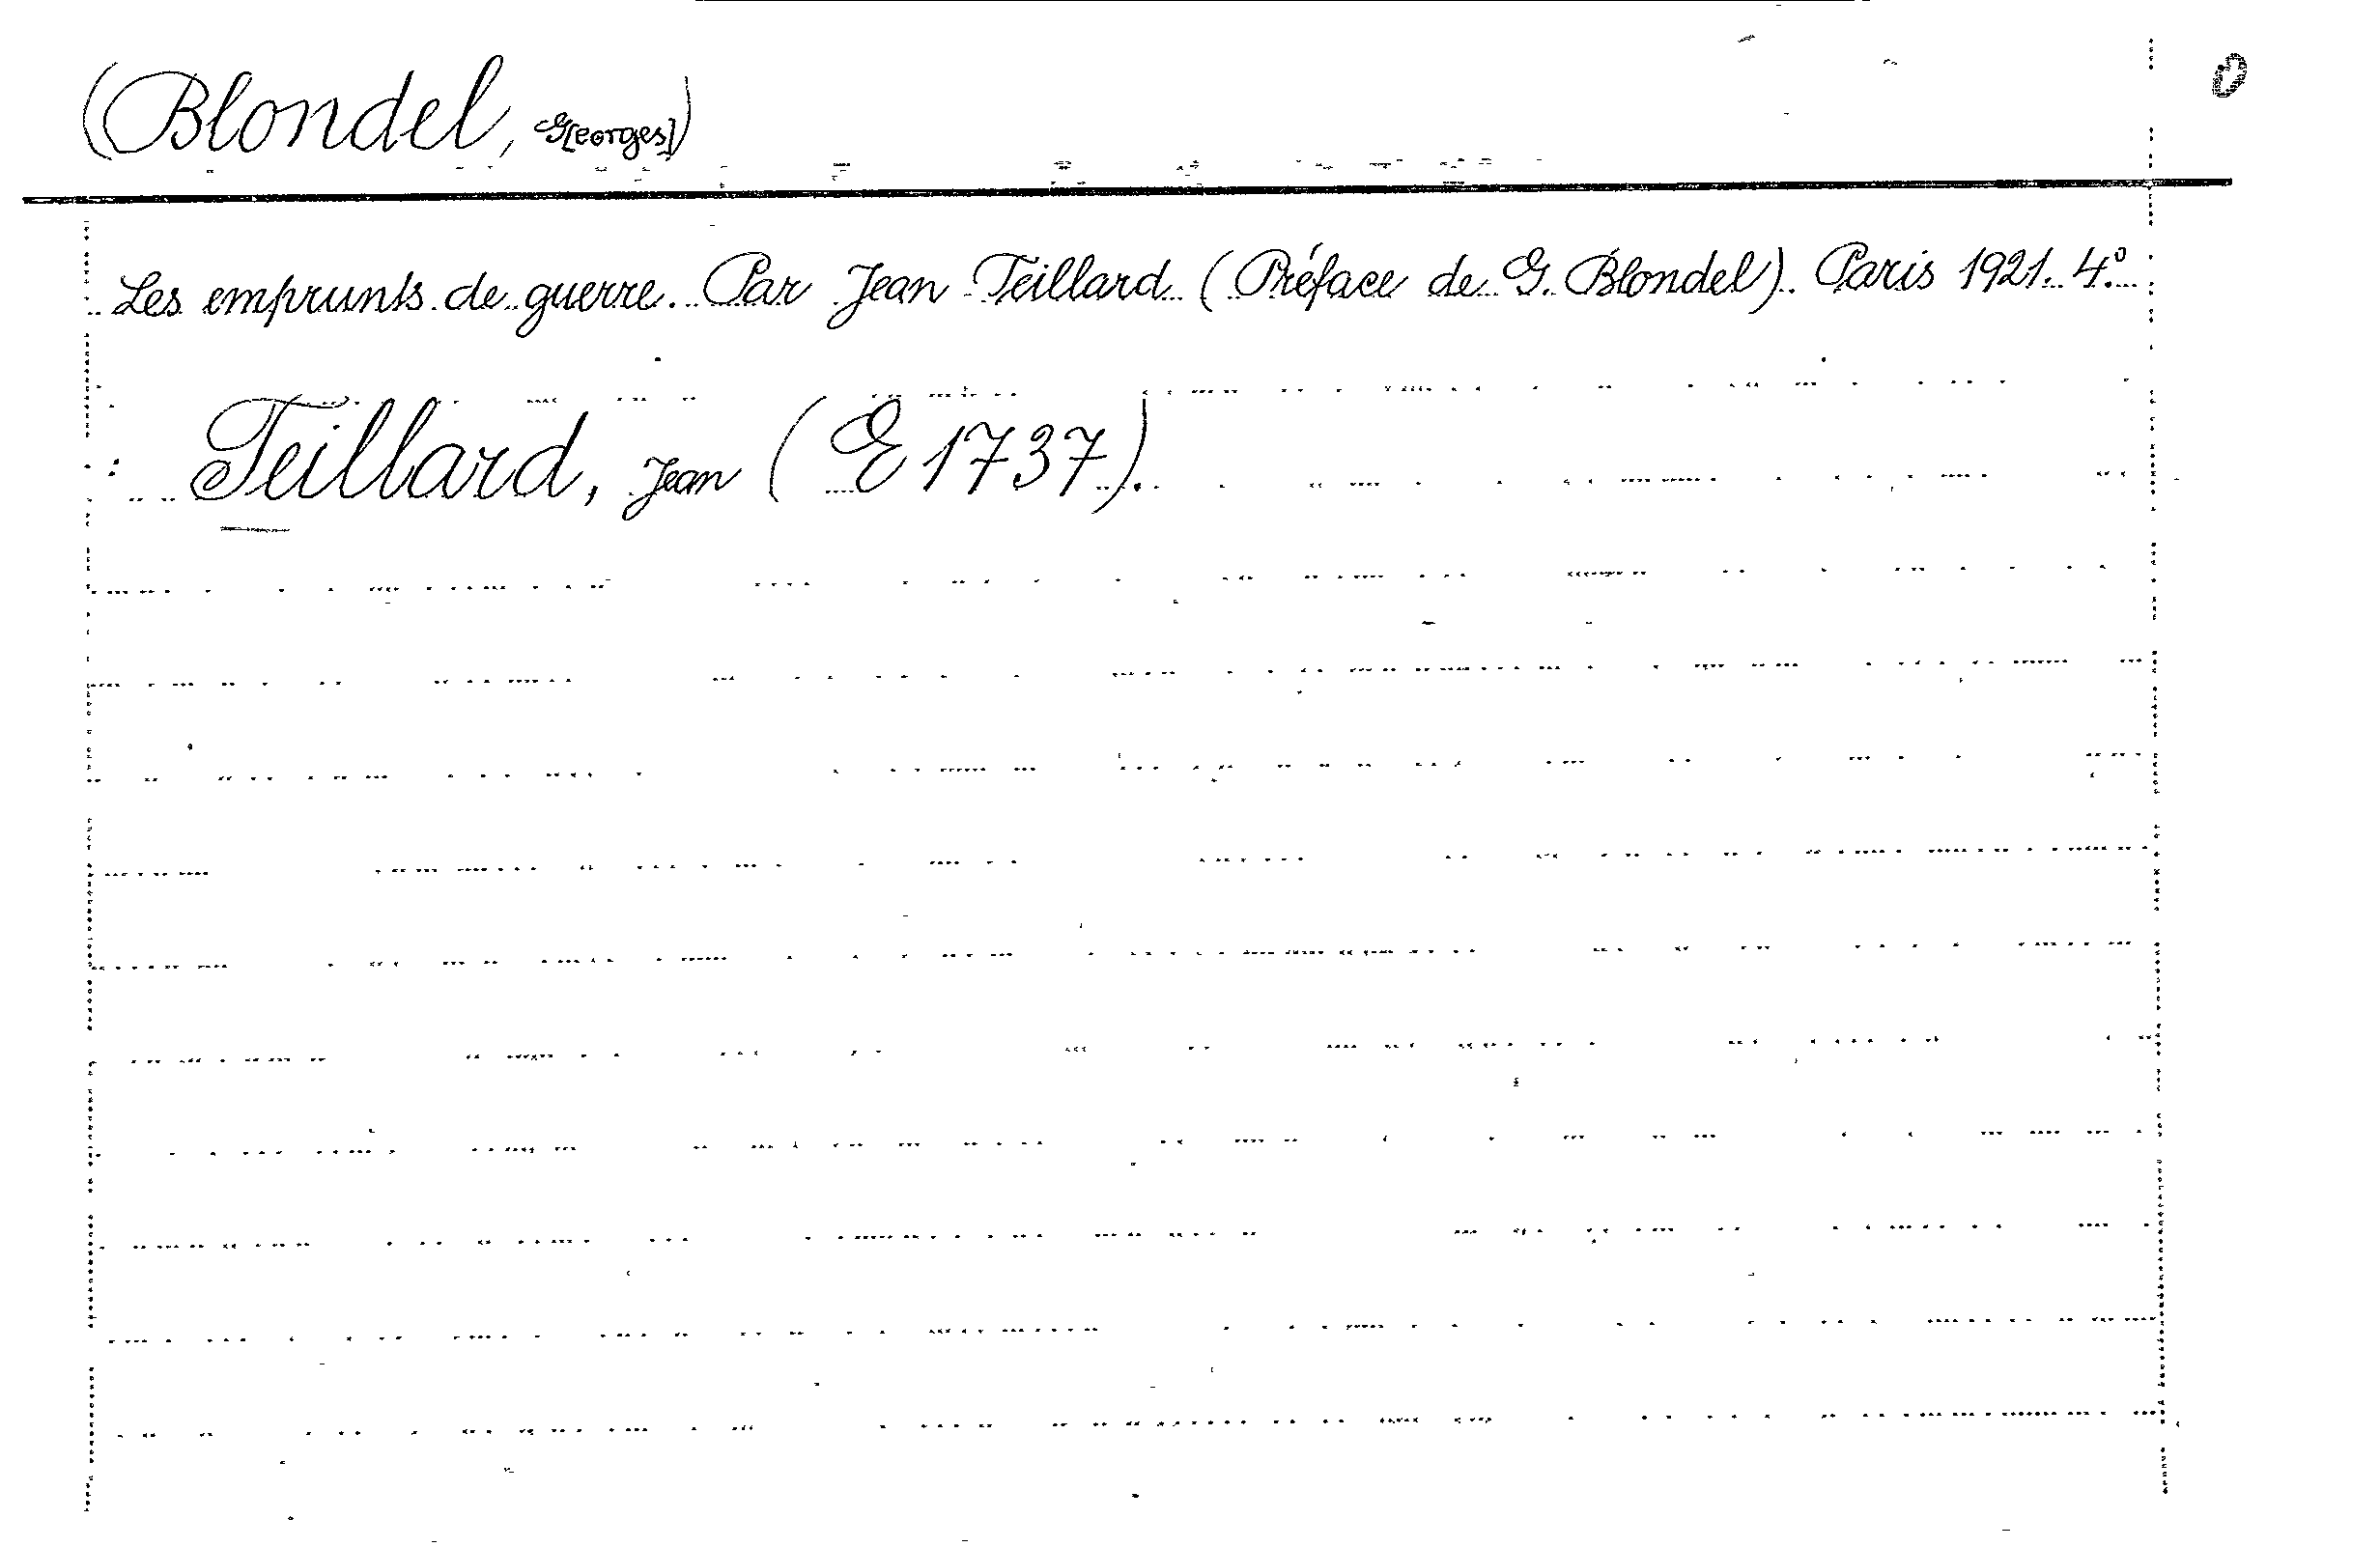 (Blondel, G[eorges])
Les emprunts de guerre. Par Jean Teillard (Préface de G. Blondel). Paris 1921. 4°.
Teillard, Jean (E 1737).